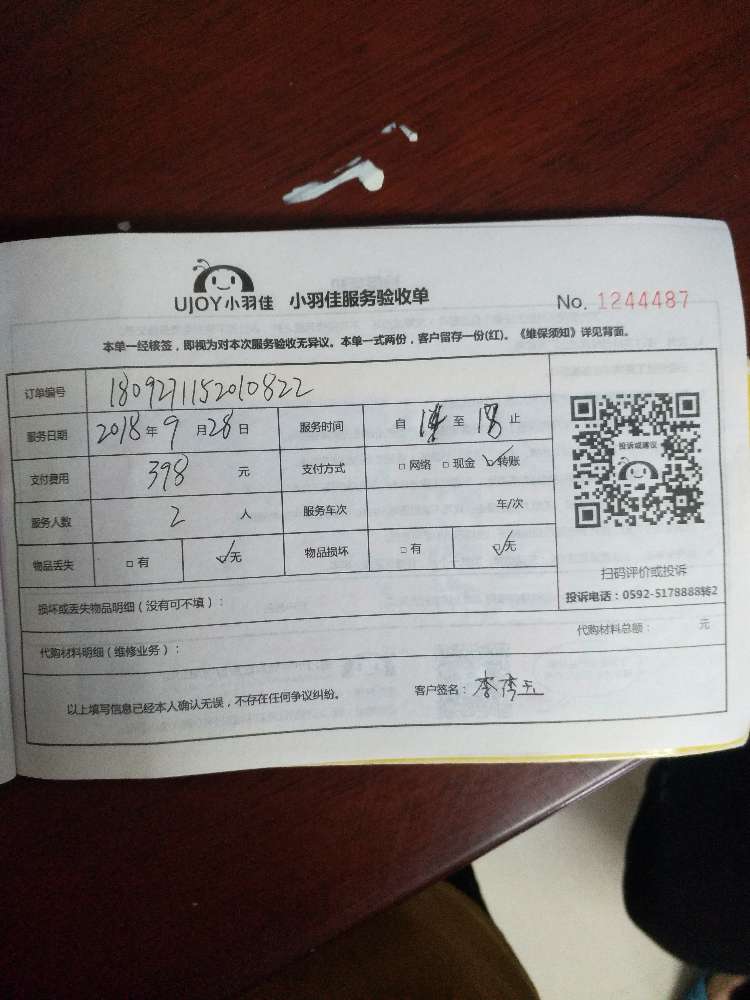 UJOY小羽佳 小羽佳服务验收单 No. 1244487
本单一经核签，即视为对本次服务验收无异议。本单一式两份，客户留存一份(红)。《维保须知》详见背面。
订单编号 1809271152010822
服务日期 2018年9月28日 服务时间 自 至 18 止
支付费用 398 元 支付方式 □网络 □现金 ☑转账
服务人数 2 人 服务车次 车/次
物品丢失 □有 ☑无 物品损坏 □有 ☑无
投诉或建议
扫码评价或投诉
投诉电话：0592-5178888转2
损坏或丢失物品明细（没有可不填）：
代购材料明细（维修业务）： 代购材料总额： 元
以上填写信息已经本人确认无误，不存在任何争议纠纷。 客户签名：李